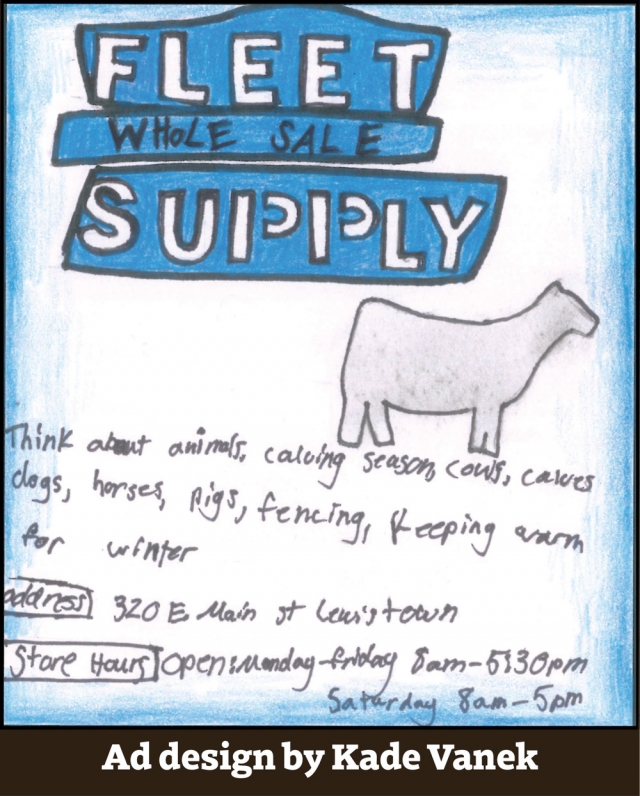 FLEET
WHOLE SALE
SUPPLY
Think about animals, calving season, cows, calves
dogs, horses, pigs, fencing, keeping warm
for winter
address 320 E. Main st Lewistown
Store Hours Open: Monday-friday 8am-5:30pm
Saturday 8am-5pm
Ad design by Kade Vanek